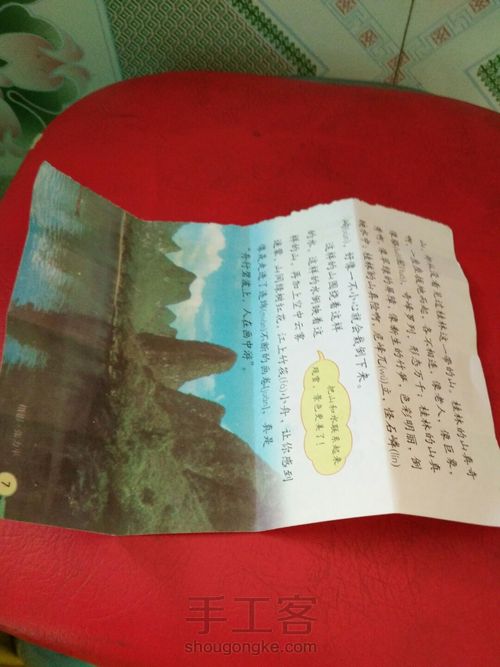 山，却从没看见过桂林这一带的山。桂林的山真奇
啊，一座座拔地而起，各不相连，像老人，像巨象，
像骆驼(tuó)，奇峰罗列，形态万千；桂林的山真
秀啊，像翠绿的屏障，像新生的竹笋，色彩明丽，倒
映水中；桂林的山真险啊，危峰兀(wù)立，怪石嶙(lín)
峋(xún)，好像一不小心就会栽倒下来。
这样的山围绕着这样
的水，这样的水倒映着这
样的山，再加上空中云雾
迷蒙，山间绿树红花，江上竹筏(fá)小舟，让你感到
像是走进了连绵(mián)不断的画卷(juàn)，真是
“舟行碧波上，人在画中游”。
把山和水联系起来
观赏，景色更美了！
7
手工客
shougongke.com